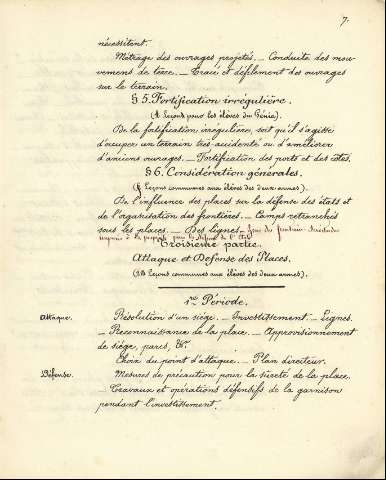 7.
nécessitent.
Métrage des ouvrages projetés. — Conduite des mou-
vemens de terre. — Tracé et défilement des ouvrages
sur le terrain.
§ 5. Fortification irrégulière.
(4 Leçons pour les élèves du Génie).
De la fortification irrégulière, soit qu'il s'agisse
d'occuper un terrain très accidenté ou d'améliorer
d'anciens ouvrages. — Fortification des ports et des côtes.
§ 6. Considération générales.
Leçons communes aux élèves des deux armes).
De l'influence des places sur la défense des états et
de l'organisation des frontières. — Camps retranchés
sous les places. — Des lignes.
Troisième partie.
Attaque et Défense des Places.
Leçons communes aux élèves des deux armes).
1re Période.
Attaque. Résolution d'un siège. — Investissement. — Lignes.
— Reconnaissance de la place. — Approvisionnement
de siège, parcs, &c.
Choix du point d'attaque. — Plan directeur.
Défense. Mesures de précaution pour la sûreté de la place.
Travaux et opérations défensifs de la garnison
pendant l'investissement.